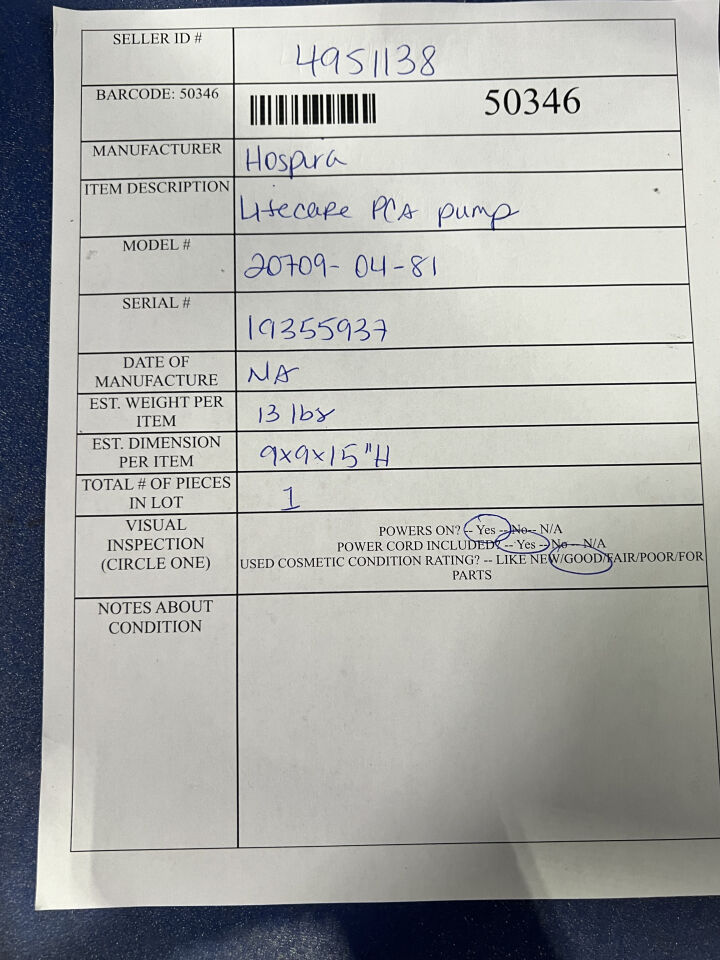 SELLER ID #
4951138
BARCODE: 50346
50346
MANUFACTURER
Hospira
ITEM DESCRIPTION
Lifecare PCA pump
MODEL #
20709-04-81
SERIAL #
19355937
DATE OF
MANUFACTURE
NA
EST. WEIGHT PER
ITEM
13 lbs
EST. DIMENSION
PER ITEM
9x9x15"H
TOTAL # OF PIECES
IN LOT
1
VISUAL
INSPECTION
(CIRCLE ONE)
POWERS ON? -- Yes -- No -- N/A
POWER CORD INCLUDED? -- Yes -- No -- N/A
USED COSMETIC CONDITION RATING? -- LIKE NEW/GOOD/FAIR/POOR/FOR
PARTS
NOTES ABOUT
CONDITION